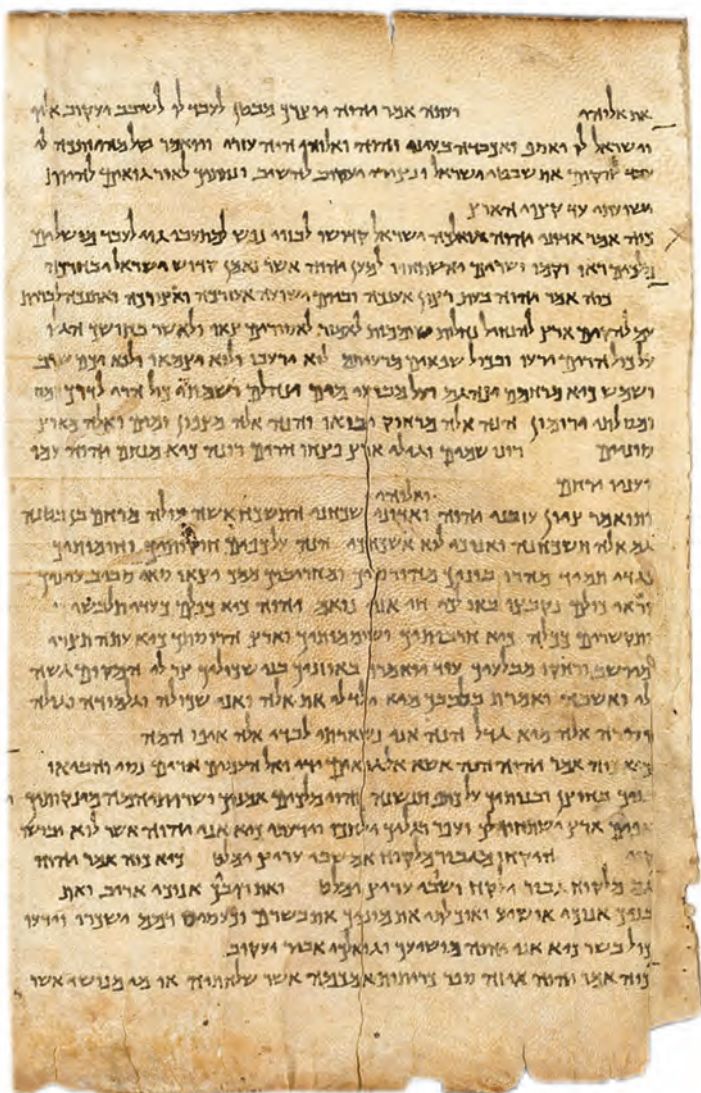 את אלוהי ועתה אמר יהוה יוצרך מבטן לעבד לו לשובב יעקוב אליו
וישראל לו יאסף ואכבדה בעיני יהוה ואלוהי היה עזרי ויואמר הנקל מהיותכה לי
עבד להקים את שבטי ישראל ונצירי יעקוב להשיב ונתתיך לאור גואים להיות
ישועתי עד קצוי הארץ
כוה אמר אדוני יהוה גואלכה ישראל קדושו לבזוי נפש למתעבי גוי לעבד מושלים
מלכים ראו וקמו ושרים והשתחוו למען יהוה אשר נאמן קדוש ישראל יבחרכה
כוה אמר יהוה בעת רצון אענכה וביום ישועה אעזרכה ואצורכה ואתנכה לברית
עם להקים ארץ להנחיל נחלות שוממות לאמור לאסורים צאו ולאשר בחושך הגלו
על כול הרים ירעו ובכול שפאים מרעיתם לוא ירעבו ולוא יצמאו ולוא יכם שרב
ושמש כיא מרחמם ינהגם ועל מבועי מים ינהלם ושמתי כול הרי לדרך
ומסלותי ירומון הנה אלה מרחוק יבואו והנה אלה מצפון ומים ואלה מארץ
סוניים רונו שמים וגילי ארץ פצחו הרים רונה כיא מנחם יהוה עמו
ועניו ירחם
ואלוהי
ותואמר ציון עזבני יהוה ואדוני שכחני התשכח אשה עולה מרחם בן בטנה
גם אלה תשכחנה ואנוכי לוא אשכחכי הנה על כפים חקותיך וחומותיך
נגדי תמיד מהרו בוניך מהורסיך ומחריביך ממך יצאו שאי סביב עיניך
וראי כולם נקבצו באו לך חי אני נואם יהוה כיא כלם כעדי תלבשי
ותקשרים ככלה כיא חרבותיך ושוממותיך וארץ הריסתך כיא עתה תצרי
מיושב ורחקו מבלעיך עוד יואמרו באוזניך בני שכוליך צר לי המקום גשה
לי ואשבה ואמרת בלבבך מיא ילד לי את אלה ואני שכולה וגלמודה גולה
וסרה אלה מיא גדל הנה אני נשארתי לבדי אלה איפו המה
כיא כוה אמר יהוה הנה אשא אל גואים ידי ואל העמים ארים נסי והביאו
בניך בחוצן ובנותיך על כתף תנשינה והיו מלכים אמניך ושרותיהמה מינקותיך
אפים ארץ ישתחוו לך ועפר רגליך ילחכו וידעתי כיא אני יהוה אשר לוא יבושו
קוי היקחו מגבור מלקוח אם שבי עריץ ימלט כיא כוה אמר יהוה
גם מלקוח גבור ילקח ושבי עריץ ימלט ואת ריבך אנוכי אריב ואת
בניך אנוכי אושיע ואוכלתי את מוניך את בשרם וכעסיס דמם ישכרו וידעו
כול בשר כיא אני יהוה מושיעך וגואלכי אביר יעקוב
כוה אמר יהוה איזה ספר כריתות אמכמה אשר שלחתיה או מי מנושי אשר